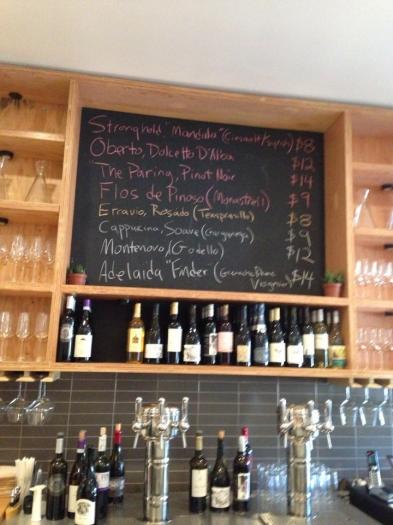 Stronghold "Mandala" (Cinsault/Syrah) $8
Oberto, Dolcetto D'Alba $12
"The Paring, Pinot Noir $14
Flos de Pinoso (Monastrell) $9
Erravio, Rosado (Tempranillo) $8
Cappuccina, Soave (Garganega) $9
Montenovo, (Godello) $12
Adelaida "Ender (Grenache Blanc
Viognier) $14